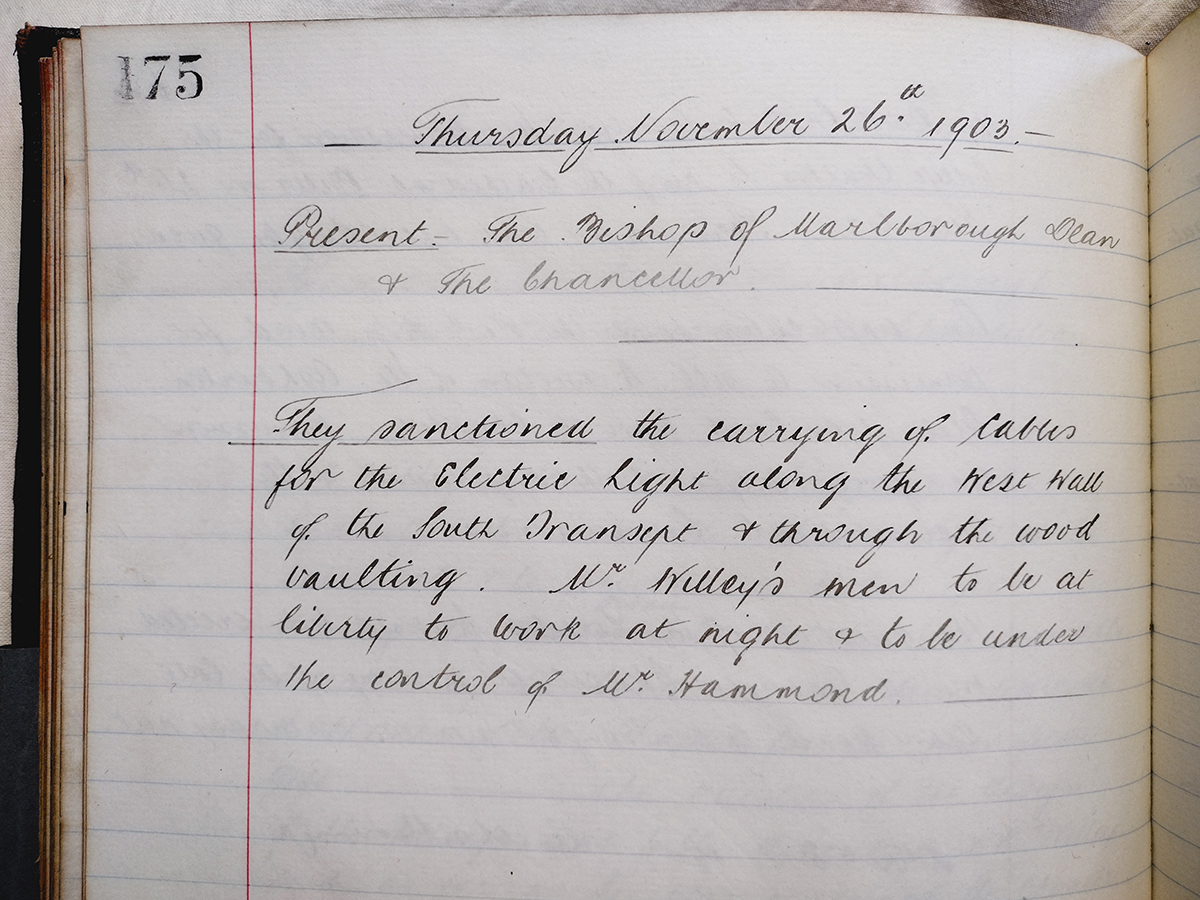 175
Thursday November 26.th 1903.
Present - The Bishop of Marlborough Dean
& The Chancellor.
They sanctioned the carrying of Cables
for the Electric Light along the West Wall
of the South Transept & through the wood
vaulting. Mr. Willey's men to be at
liberty to work at night & to be under
the control of Mr. Hammond.